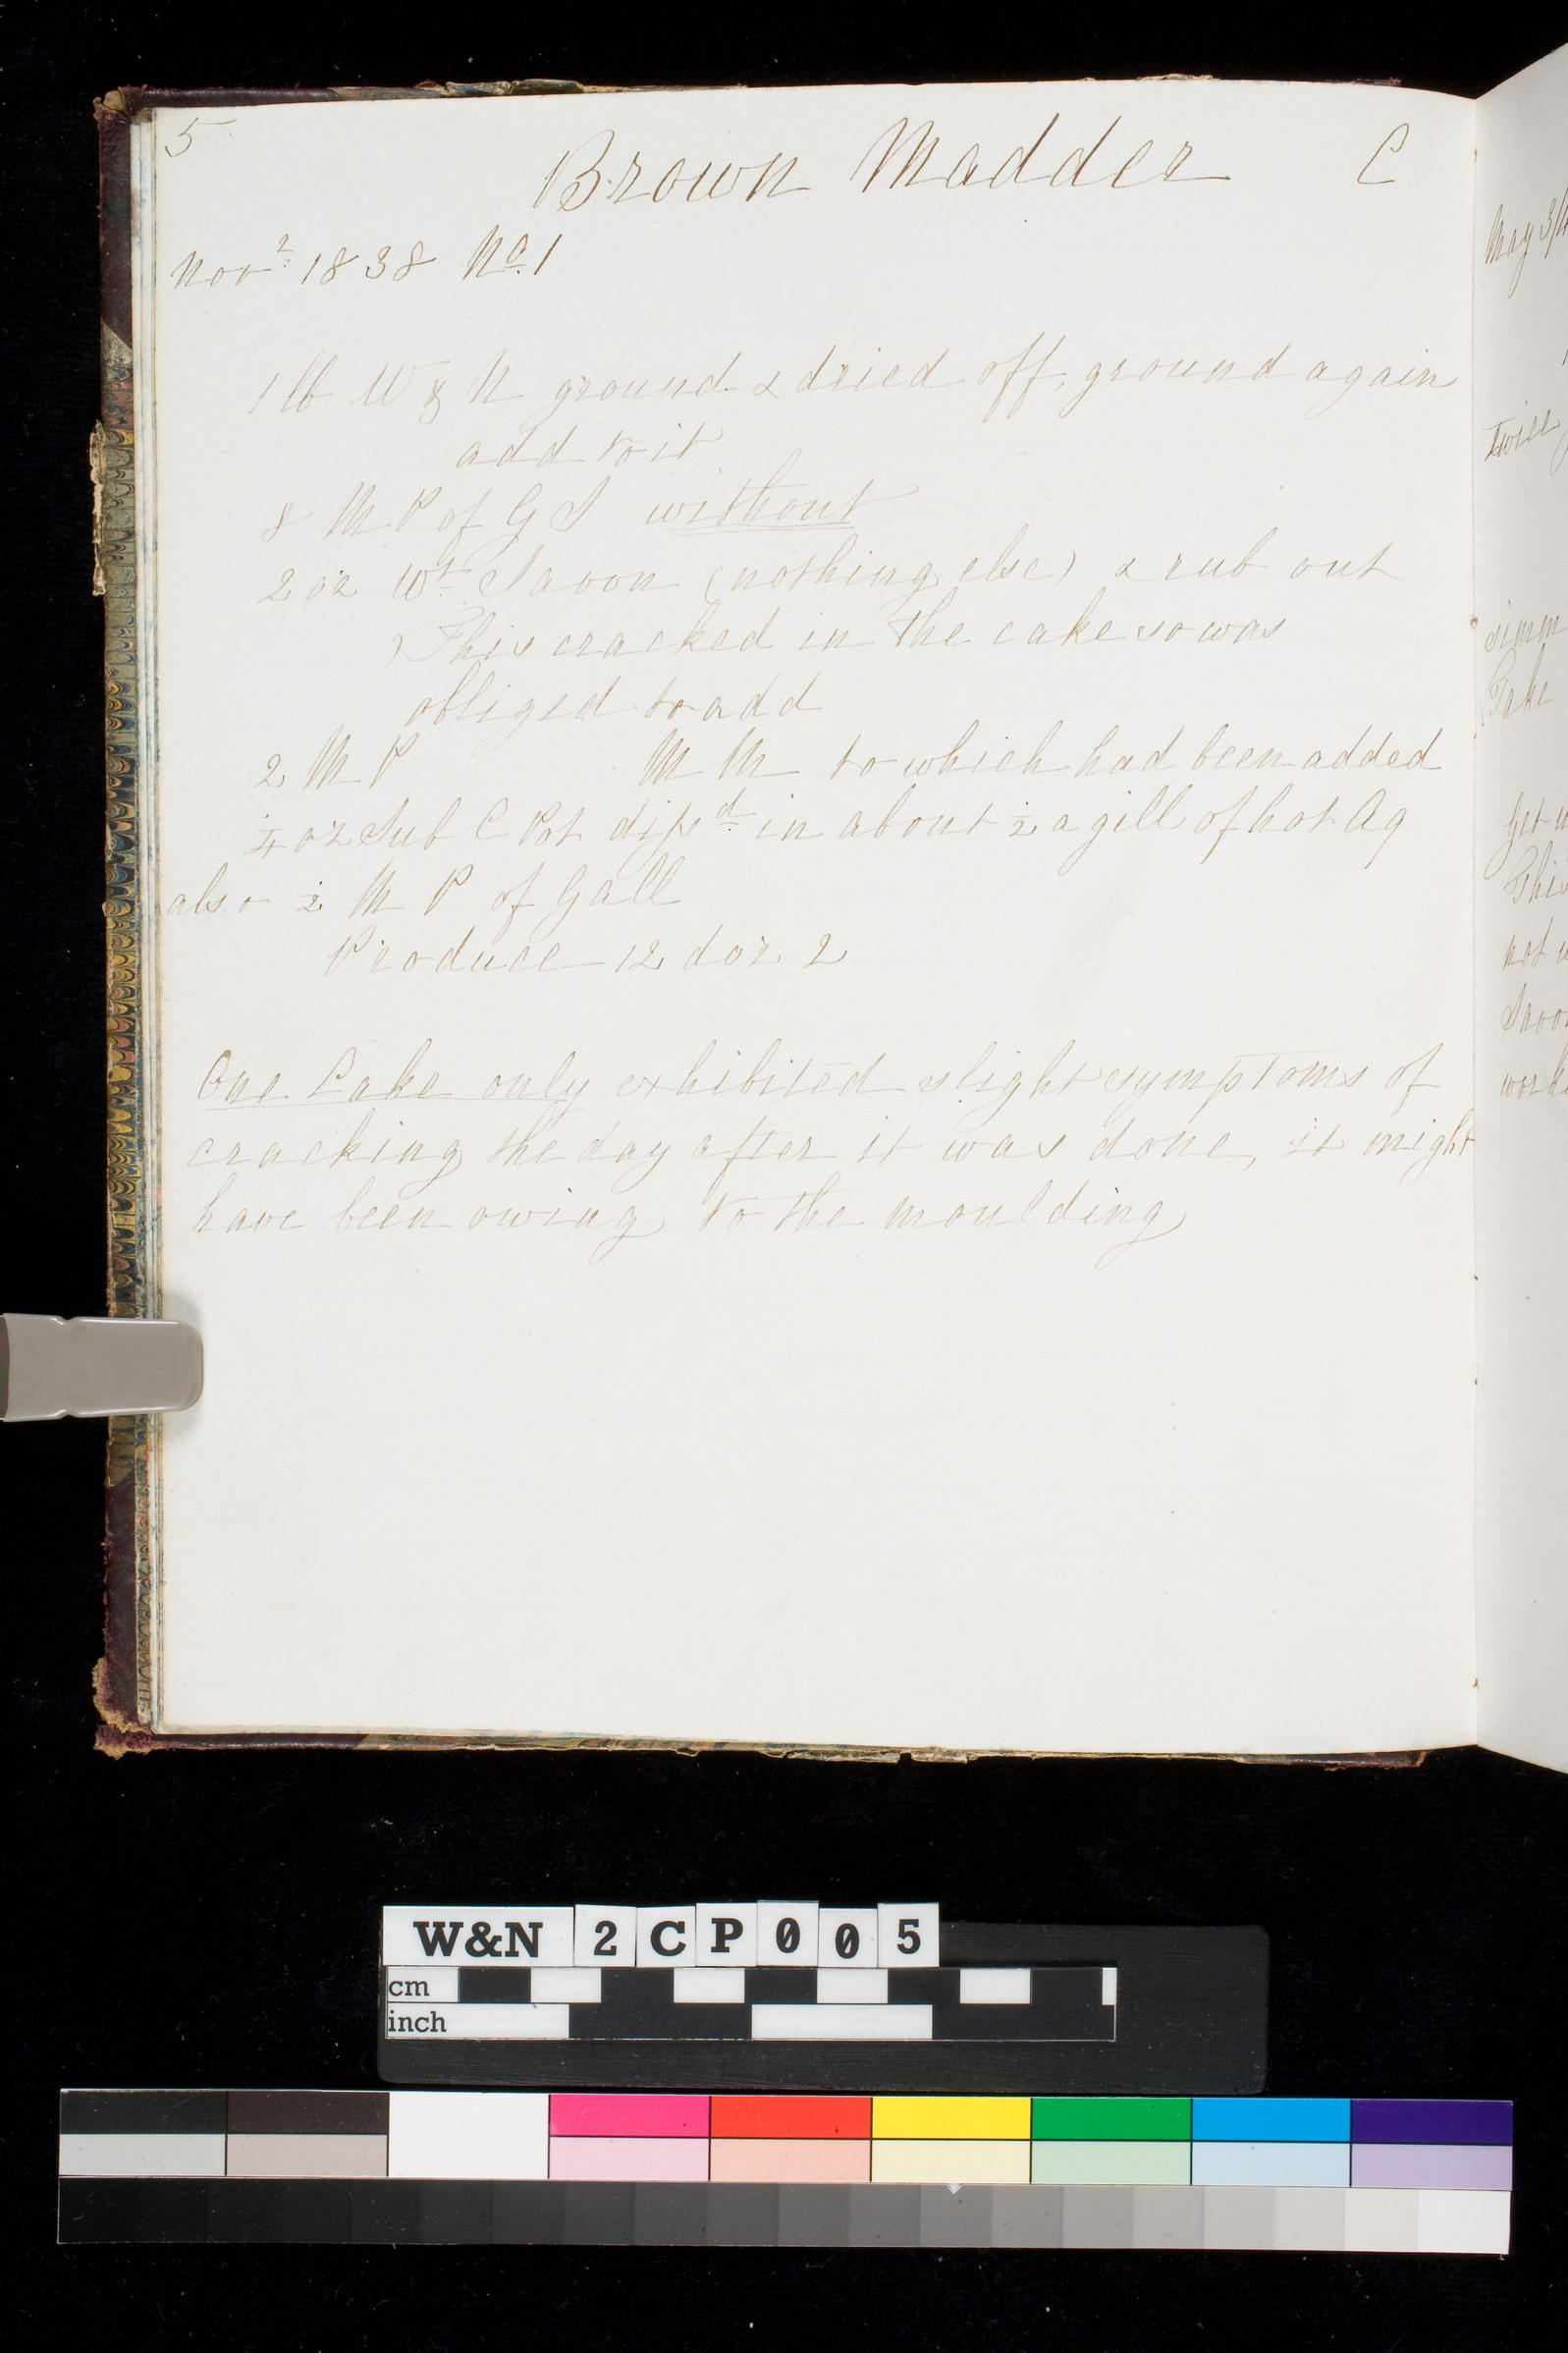 5
Brown Madder C
Nov 2 1838 No. 1
1 lb W & N ground & dried off, ground again
add to it
8 M P of G S without
2 oz Wt Savon (nothing else) & rub out
This cracked in the cake so was
obliged to add
2 M P M M to which had been added
¼ oz Sub C Pot dissd in about ½ a gill of hot Aq
also ½ M P of Gall
Produce 12 doz 2
One Cake only exhibited slight symptoms of
cracking the day after it was done, it might
have been owing to the moulding
May 3
twice
simm
Take
Get
This
not
Savo
work
W&N 2CP005
cm
inch